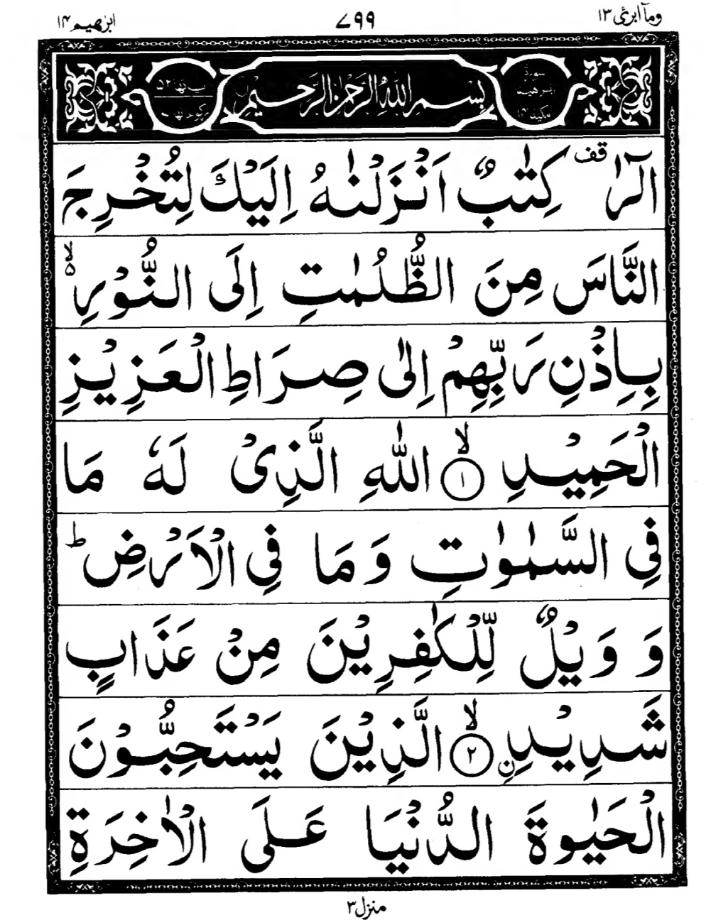 وماۤ ابرئ ١٣ ٧٩٩ ابرٰهيم ١٤
بِسْمِ اللهِ الرَّحْمٰنِ الرَّحِيْمِ
الٓرٰ قف كِتٰبٌ اَنْزَلْنٰهُ اِلَيْكَ لِتُخْرِجَ
النَّاسَ مِنَ الظُّلُمٰتِ اِلَى النُّوْرِ ۙ۵
بِاِذْنِ رَبِّهِمْ اِلٰى صِرَاطِ الْعَزِيْزِ
الْحَمِيْدِ ۙ‏﴿١﴾ اللّٰهِ الَّذِىْ لَهٗ مَا
فِى السَّمٰوٰتِ وَمَا فِى الْاَرْضِ ؕ
وَ وَيْلٌ لِّلْكٰفِرِيْنَ مِنْ عَذَابٍ
شَدِيْدِ ۙ‏﴿٢﴾ ن الَّذِيْنَ يَسْتَحِبُّوْنَ
الْحَيٰوةَ الدُّنْيَا عَلَى الْاٰخِرَةِ
منزل ٣